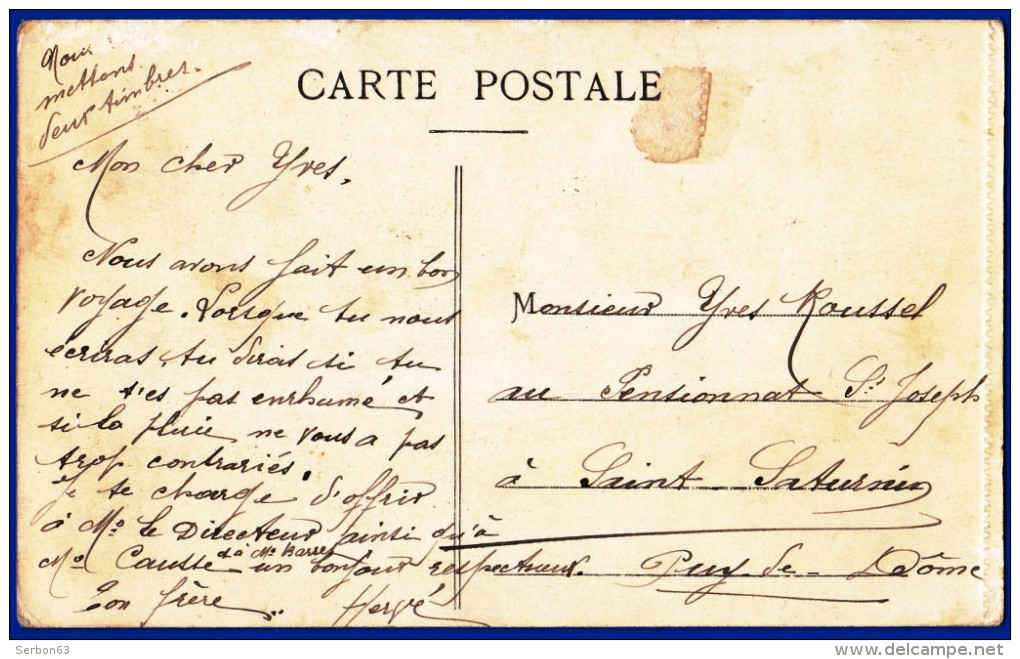 Nous
mettons
deux timbres.
CARTE POSTALE
Mon cher Yves,
Nous avons fait un bon
voyage. Lorsque tu nous
écriras, tu diras si tu
ne t'es pas enrhumé et
si la pluie ne vous a pas
trop contrariés.
Je te charge d'offrir
à Mr le Directeur ainsi qu'à
Mr Causse et à Mr Barret un bonjour respectueux.
Ton frère
Hervé
Monsieur Yves Roussel
au Pensionnat St Joseph
à Saint Saturnin
Puy-de-Dôme
Serbon63
delcampe.net